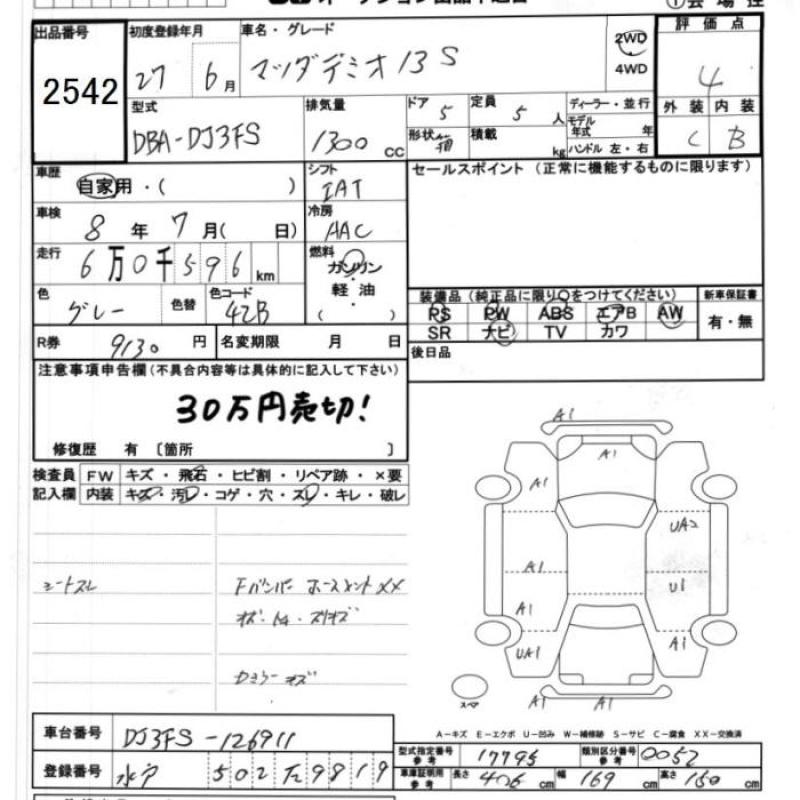 オークション出品申込書
①会場控
出品番号 2542
初度登録年月 27 6月
車名・グレード マツダデミオ13S
2WD
4WD
評価点 4
外装 C 内装 B
型式 DBA-DJ3FS
排気量 1300cc
ドア 5
形状 箱
定員 5人
積載 kg
ディーラー・並行
モデル年式 年
ハンドル 左・右
車歴 自家用・( )
シフト IAT
セールスポイント (正常に機能するものに限ります)
車検 8年7月( 日)
冷房 AAC
走行 6万0千596km
燃料 ガソリン・軽油( )
色 グレー 色替 色コード 42B
装備品(純正品に限り○をつけてください) 新車保証書
PS PW ABS エアB AW 有・無
SR ナビ TV カワ
R券 9130円 名変期限 月 日
後日品
注意事項申告欄(不具合内容等は具体的に記入して下さい)
30万円売切!
修復歴 有 〔箇所 〕
検査員 FW キズ・飛石・ヒビ割・リペア跡・×要
記入欄 内装 キズ・汚レ・コゲ・穴・スレ・キレ・破レ
シートスレ
Fバンパー ホースメントXX
カメラーキズ
A1
A1
A1
UA2
A1
U1
A1
A1
UA1
スペア
A1
A1
A-キズ E-エクボ U-凹み W-補修跡 S-サビ C-腐食 XX-交換済
車台番号 DJ3FS-126911
型式指定番号参考 17795 類別区分番号参考 0052
登録番号 水戸 502 た 9819
車庫証明用参考 長さ 406cm 幅 169cm 高さ 150cm